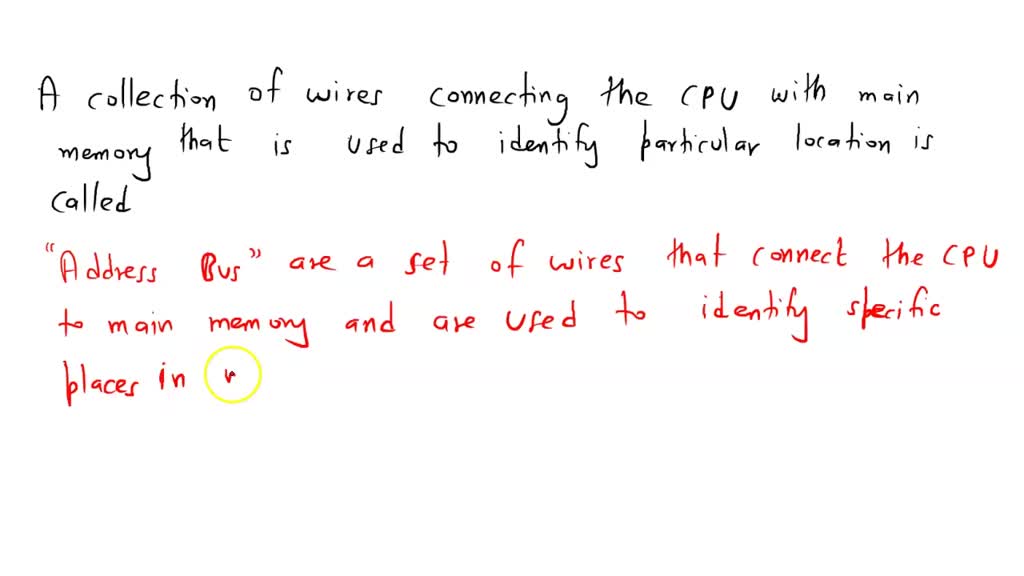 A collection of wires connecting the CPU with main
memory that is used to identify particular location is
called
"Address Bus" are a set of wires that connect the CPU
to main memory and are used to identify specific
places in